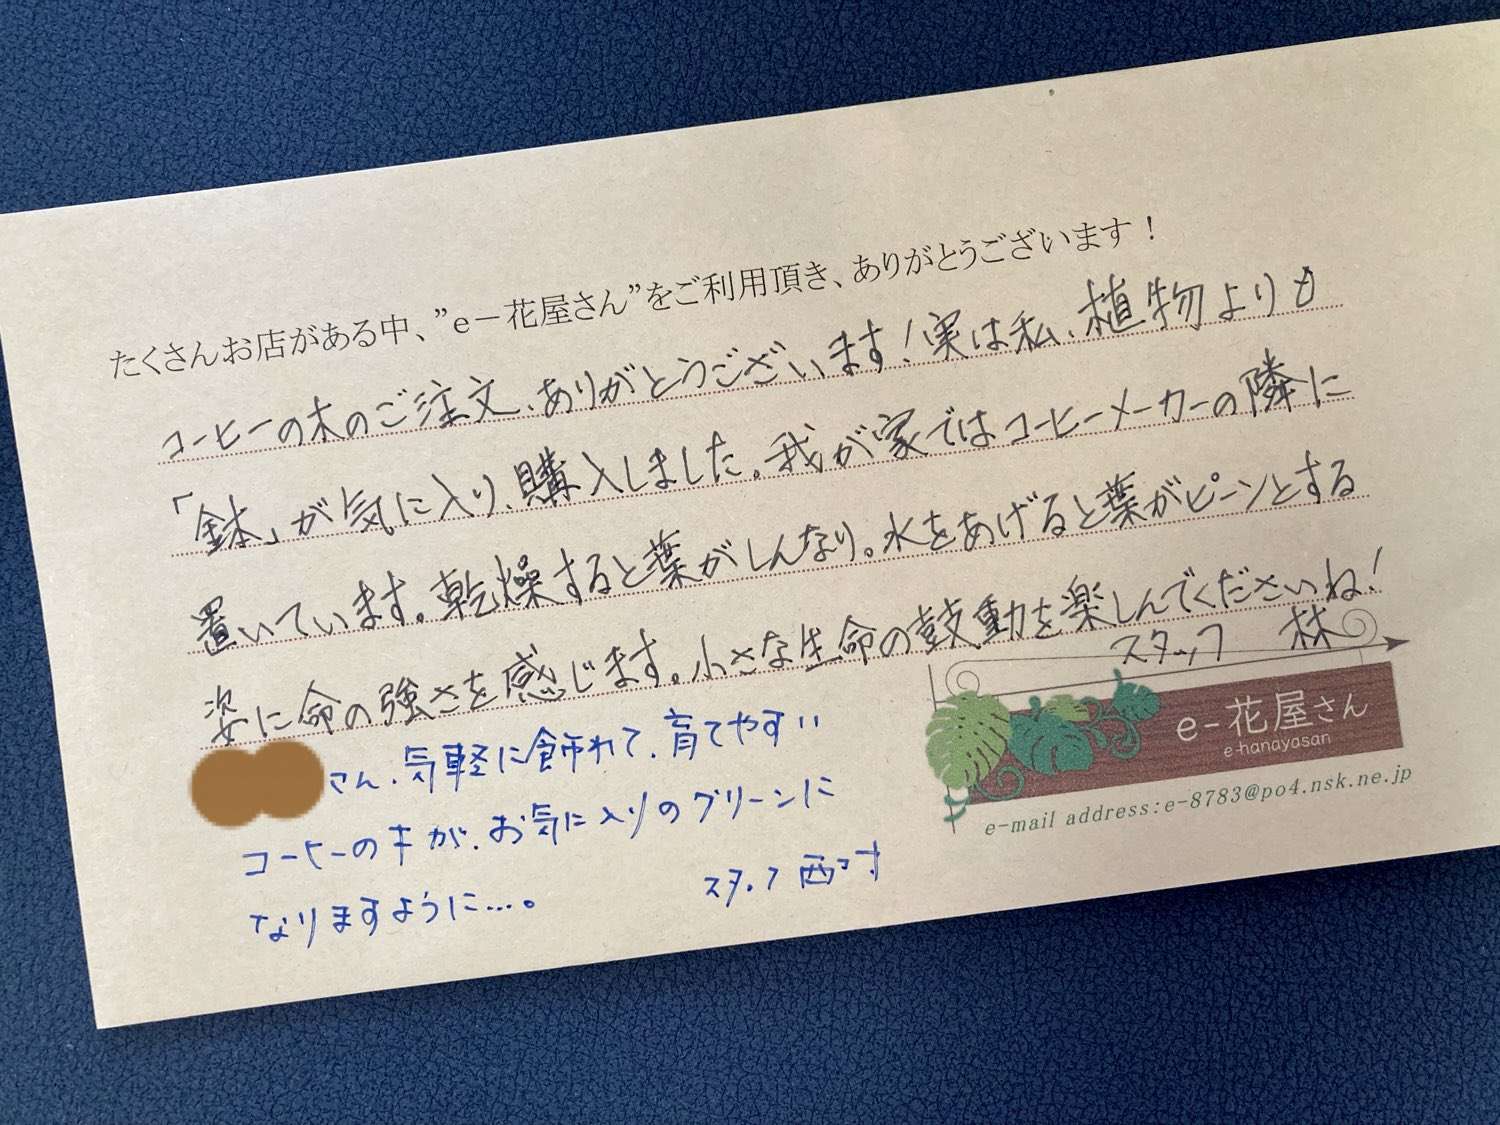 たくさんお店がある中、”e－花屋さん”をご利用頂き、ありがとうございます！
コーヒーの木のご注文、ありがとうございます！実は私、植物よりも
「鉢」が気に入り、購入しました。我が家ではコーヒーメーカーの隣に
置いています。乾燥すると葉がしんなり。水をあげると葉がピーンとする
姿に命の強さを感じます。小さな生命の鼓動を楽しんでくださいね！
スタッフ 林
さん、気軽に飾れて、育てやすい
コーヒーの木が、お気に入りのグリーンに
なりますように…。
スタッフ 西村
e-花屋さん
e-hanayasan
e-mail address:e-8783@po4.nsk.ne.jp